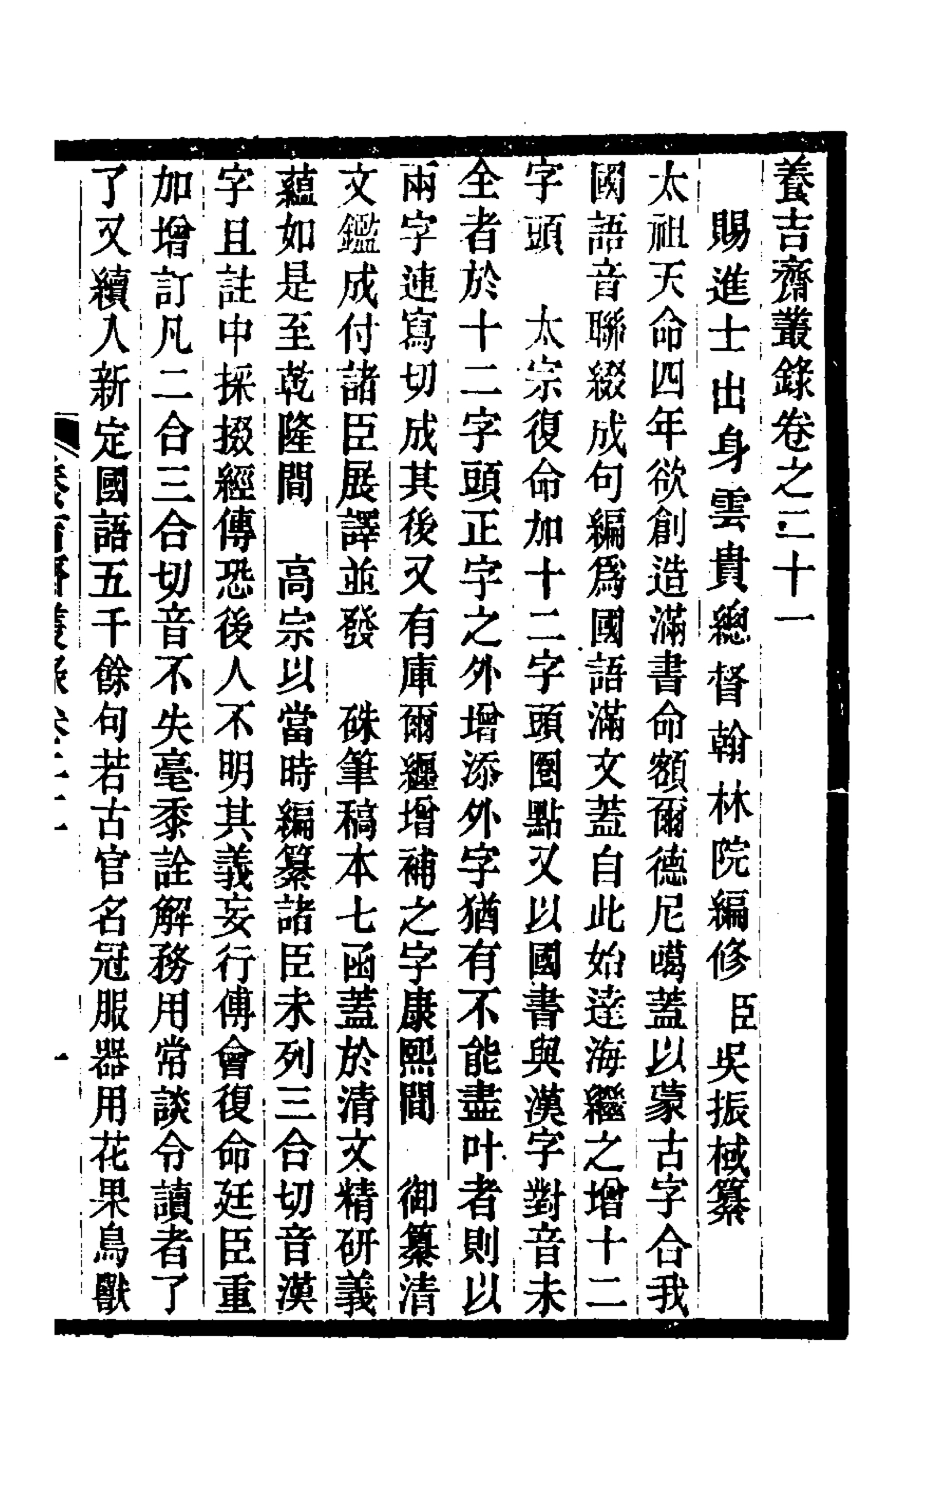 養吉齋叢錄卷之二十一
賜進士出身雲貴總督翰林院編修 臣吳振棫纂
太祖天命四年欲創造滿書命額爾德尼噶蓋以蒙古字合我
國語音聯綴成句編爲國語滿文蓋自此始達海繼之增十二
字頭 太宗復命加十二字頭圈點又以國書與漢字對音未
全者於十二字頭正字之外增添外字猶有不能盡叶者則以
兩字連寫切成其後又有庫爾纏增補之字康熙間 御纂清
文鑑成付諸臣展譯並發 硃筆稿本七函蓋於清文精研義
蘊如是至乾隆間 高宗以當時編纂諸臣未列三合切音漢
字且註中採掇經傳恐後人不明其義妄行傅會復命廷臣重
加增訂凡二合三合切音不失毫黍詮解務用常談令讀者了
了又續入新定國語五千餘句若古官名冠服器用花果鳥獸
養吉齋叢錄卷二十一 一